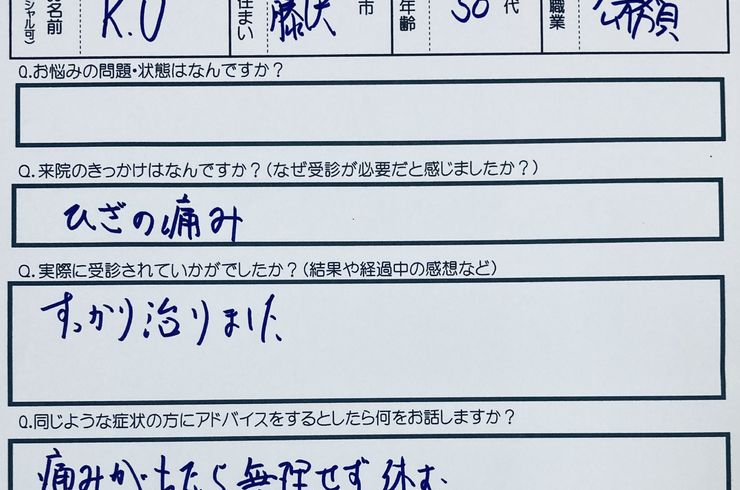 名前
(シャル可)
K.U
住まい
藤沢
市
年齢
50
代
職業
公務員
Q.お悩みの問題・状態はなんですか？
Q.来院のきっかけはなんですか？(なぜ受診が必要だと感じましたか？)
ひざの痛み
Q.実際に受診されていかがでしたか？(結果や経過中の感想など)
すっかり治りました
Q.同じような症状の方にアドバイスをするとしたら何をお話しますか？
痛みがでたら無理せず休む、